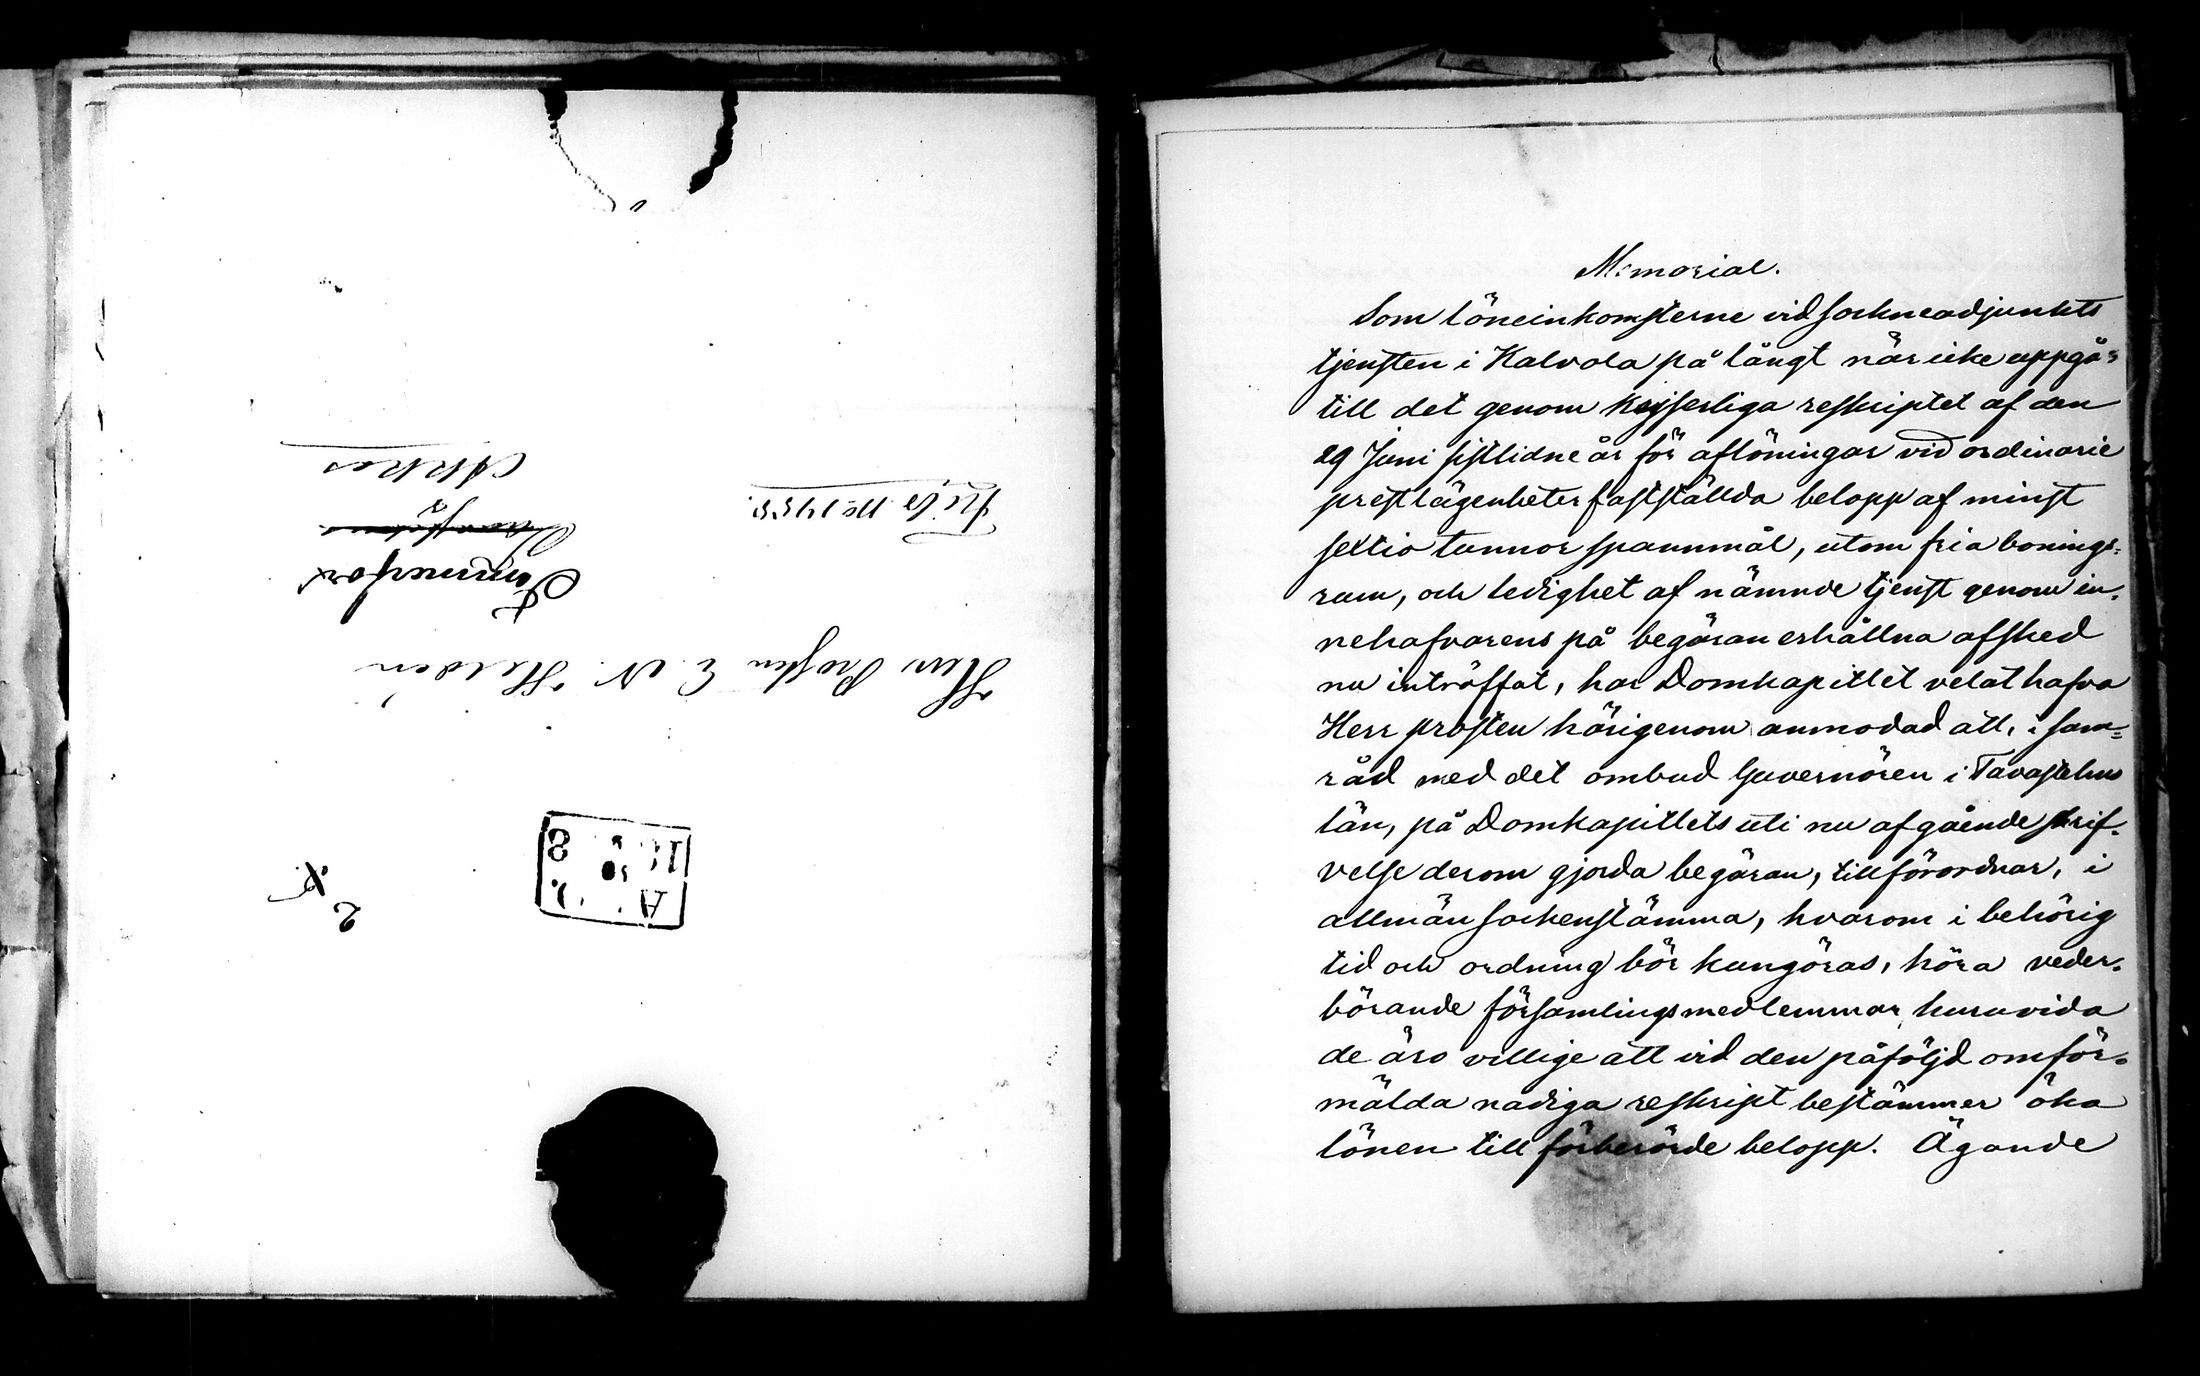 Herr Prosten E. N. Heldén
Tammerfors
Akkas
Fribr. No 1455.
Memorial.
Som löneinkomsterne vid sockneadjunkts
tjensten i Kalvola på långt när icke uppgå
till det genom Kejserliga reskriptet af den
29 Juni sistlidne år för aflöningar vid ordinarie
prestlägenheter fastställda belopp af minst
sextio tunnor spannmål, utom fria bonings-
rum, och ledighet af nämnde tjenst genom in-
nehafvarens på begäran erhållna afsked
nu inträffat, har Domkapitlet velat hafva
Herr prosten härigenom anmodad att, i sam-
råd med det ombud Guvernören i Tavastehus
län, på Domkapitlets uti nu afgående skrif-
velse derom gjorda begäran, tillförordnar, i
allmän sockenstämma, hvarom i behörig
tid och ordning bör kungöras, höra veder-
börande församlingsmedlemmar, huruvida
de äro villige att vid den påföljd omför-
mälda nådiga reskript bestämmer öka
lönen till förberörde belopp. Ägande